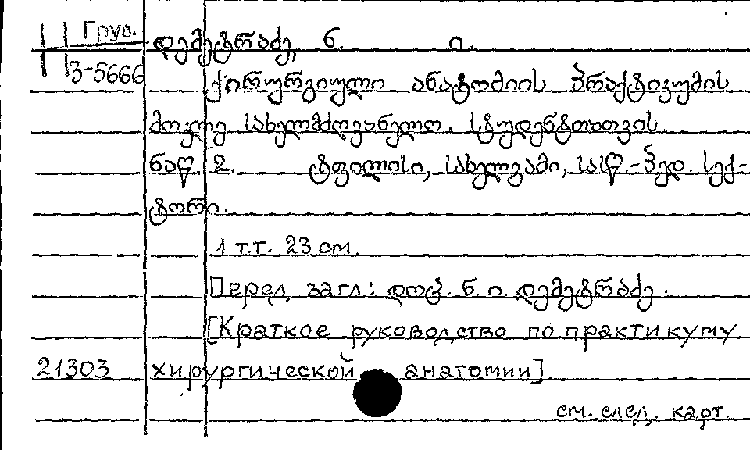 Груз.
დემეტრაძე, ნ. ი.
3-5666
ქირურგიული ანატომიის პრაქტიკუმის
მოკლე სახელმძღვანელო. სტუდენტთათვის
ნაწ. 2. ტფილისი, სახელგამი, საწ.-პედ. სექ-
ტორი.
1 т.т. 23 см.
Перед загл.: დოც. ნ. ი. დემეტრაძე.
[Краткое руководство по практикуму
21303 хирургической анатомии]
см. след. карт.